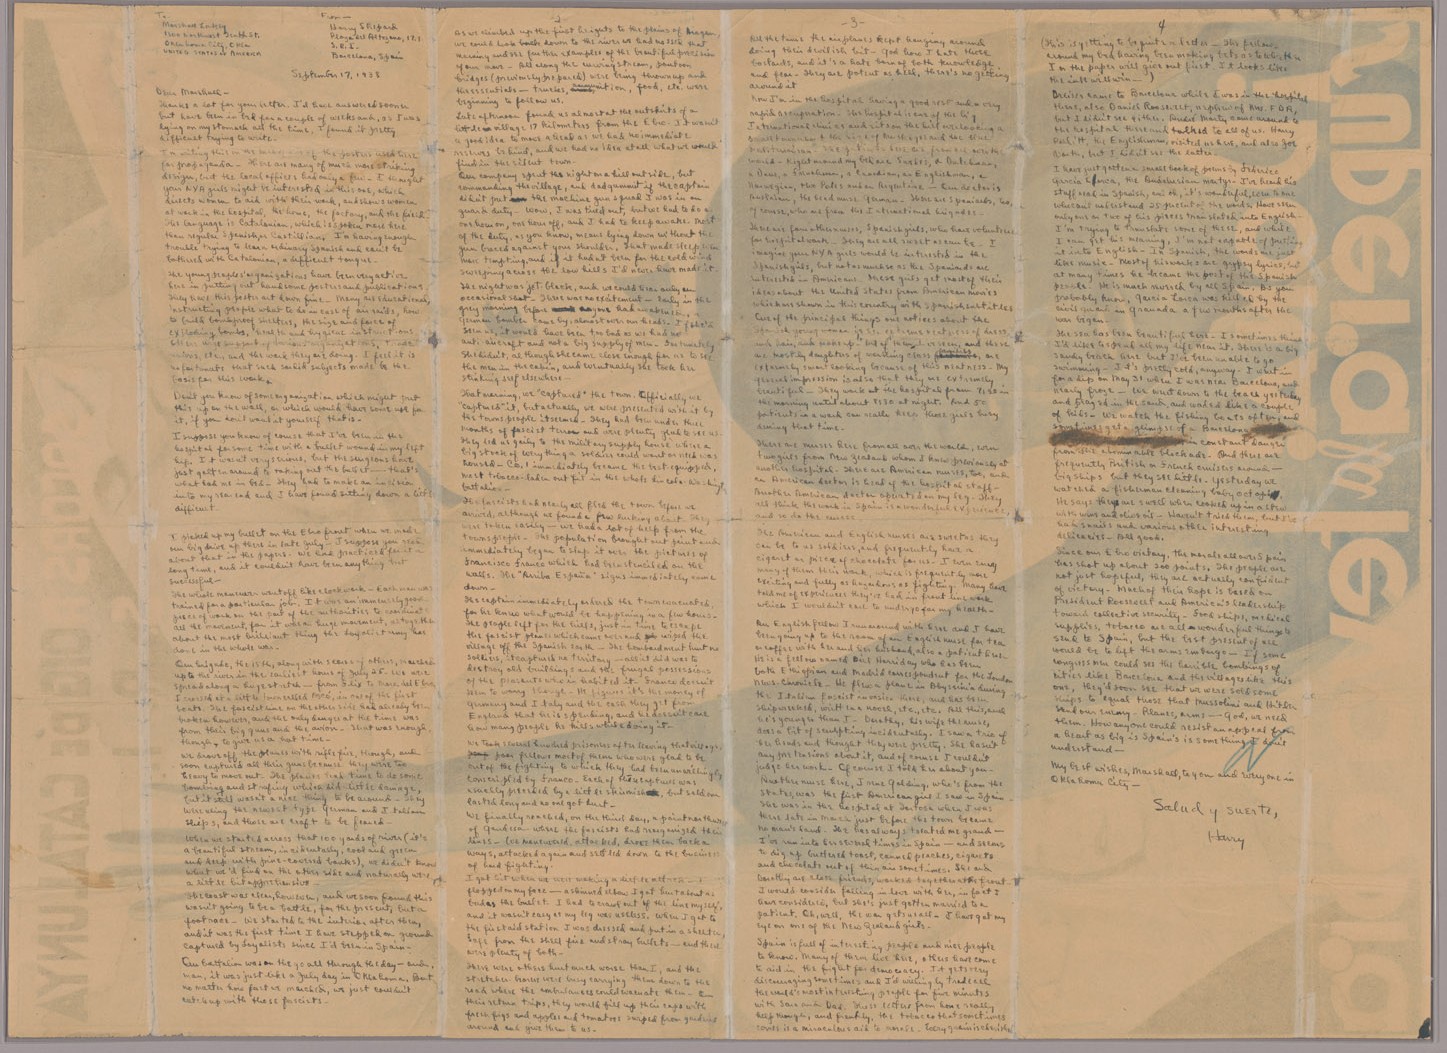 To:
Marshall Lakey
Oklahoma City, Okla
United States of America
From—
Harry
Plaza del Altozano, 121
S.R.I.
Barcelona, Spain
September 17, 1938
Dear Marshall—
Thanks a lot for your letter. I'd have answered sooner
but have been in bed for a couple of weeks and, as I was
lying on my stomach all the time, I found it pretty
difficult trying to write.
for propaganda. There are many of much more striking
design, but the local offices had only a few. I thought
your NYA girls might be interested in this one, which
directs women to aid with their work, and shows women
at work in the hospital, the home, the factory, and the field.
The language is Catalonian, which is spoken more here
than regular Spanish or Castillian. I'm having enough
trouble trying to learn ordinary Spanish and can't be
bothered with Catalonian, a difficult tongue.
The young people's organizations have been very active
here in putting out handsome posters and publications.
They have this poster art down fine. Many are educational,
instructing people what to do in case of air raids, how
to build bombproof shelters, the size and force of
exploding bombs, health and hygiene instructions
unfortunate that such sordid subjects made be the
basis for this work.
Don't you know of some organization which might put
this up on the wall, or which would have some use for
it, if you don't want it yourself that is.
I suppose you know of course that I've been in the
hospital for some time with a bullet wound in my left
hip. It wasn't very serious, but the surgeons have
just gotten around to taking out the bullet — that's
what had me in bed. They had to make an incision
into my rear end and I have found sitting down a little
difficult.
I picked up my bullet on the Ebro front when we made
our big drive up there in late July. I suppose you read
about that in the papers. We had practiced for it a
long time, and it couldn't have been anything but
successful—
The whole maneuver went off like clockwork — Each man was
trained for a particular job. It was an immensely good
piece of work on the part of the authorities to coordinate
all the movement, for it was a huge movement, perhaps the
about the most brilliant thing the loyalist army has
done in the whole war.
Our brigade, the 15th, along with scores of others, marched
up to the river in the earliest hours of July 25. We were
I crossed at a little town called Asco, in one of the first
boats. The fascist line on the other side had already been
broken however, and the only danger at the time was
from their big guns and the avion. That was enough,
though, to give us a hot time.
We drove off the planes with rifle fire, though, and
soon captured all their guns because they were too
heavy to move out. The planes took time to do some
bombing and strafing which did little damage,
but it still wasn't a nice thing to be around — They
were using the newest type German and Italian
ships, and those are craft to be feared—
When we started across that 100 yards of river (it's
a beautiful stream, incidentally, cool and green
and deep with pine-covered banks), we didn't know
what we'd find on the other side and naturally were
a little bit apprehensive—
The coast was clear, however, and we soon found this
wasn't going to be a battle, for the present, but a
foot race — We started to the interior after them,
and it was the first time I have stepped on ground
captured by loyalists since I'd been in Spain—
Our battalion was on the go all through the day — and,
man, it was just like a July day in Oklahoma. But
no matter how fast we marched, we just couldn't
catch up with those fascists—
2
As we climbed up the first heights to the plains of Aragon,
we could look back down to the river we had
moving and see further examples of the beautiful precision
of our move — All along the curving stream, pontoon
bridges (previously prepared) were being thrown up and
the essentials — trucks, ammunition, food, etc. were
beginning to follow us.
Late afternoon found us almost at the outskirts of a
little village 17 kilometers from the Ebro — It wasn't
a good idea to move ahead as we had no immediate
reserves behind, and we had no idea at all what we would
find in the silent town.
Our company spent the night on a hill outside, but
commanding the village, and dadgummit if the captain
didn't put the machine gun squad I was in on
guard duty — Wow, I was tired out, but we had to do a
one hour on, one hour off, and I had to keep awake. Most
of the duty, as you know, means lying down with out the
gun braced against your shoulder, That made sleep even
more tempting, and if it hadn't been for the cold wind
sweeping across the low hills I'd never have made it.
The night was jet black, and we could hear only an
occasional shot — There was no excitement — Early in the
grey morning before anyone had awakened, a
German bomber flew by, almost over our heads. If she'd
seen us, it would have been too bad as we had no
anti-aircraft and not a big supply of men — Fortunately
she didn't, although she came close enough for me to see
the men in the cabin, and eventually she took her
strafing self elsewhere—
That morning, we "captured" the town. Officially we
"captured" it, but actually we were presented with it by
the townspeople themselves — They had been under three
months of fascist terror and were plenty glad to see us.
They led us gaily to the military supply house where a
big stock of everything a soldier could want or need was
housed — Co. 1 immediately became the best equipped,
most tobacco-laden outfit in the whole Lincoln-Washington
battalion—
The fascists had nearly all fled the town before we
arrived, although we found a few lurking about. They
were taken easily — we had a lot of help from the
townspeople. The population brought out paint and
immediately began to slap it over the pictures of
Francisco Franco which had been stenciled on the
walls. The "Arriba España" signs immediately came
down—
The captain immediately ordered the town evacuated,
for he knew what would be happening in a few hours—
The people left for the hills, just in time to escape
the fascist planes which came over and wiped the
village off the Spanish earth — The bombardment hurt no
soldiers, it captured no territory — all it did was to
destroy old buildings and the frugal possessions
of the peasants who inhabited it. Franco doesn't
seem to worry though — He figures it's the money of
Germany and Italy and the cash they get from
England that he is spending, and he doesn't care
how many people he kills while doing it—
We took several hundred prisoners after leaving that village,
poor fellows most of them who were glad to be
out of the fighting to which they had been unwillingly
conscripted by Franco — Each of these captures was
usually preceded by a little skirmish, but seldom
lasted long and no one got hurt—
We finally reached, on the third day, a point northwest
of Gandesa where the fascists had reorganized their
lines — We maneuvered, attacked, drove them back a
ways, attacked again and settled down to the business
of hard fighting.
I got hit when we were making a
flopped on my face — as hard as I could but about as
the bullet. I had to crawl out of the line myself,
and it wasn't easy as my leg was useless. When I got to
the first aid station I was dressed and put in a shelter,
safe from the shell fire and stray bullets — and there
were plenty of both—
There were others hurt much worse than I, and the
stretcher bearers were busy carrying them down to the
road where the ambulances could evacuate them — On
their return trips, they would fill up their caps with
fresh figs and apples and tomatoes swiped from gardens
around and give them to us.
-3-
All the time the airplanes kept hanging around
doing their devilish bit — God how I hate those
bastards, and it's a hate born of both knowledge
and fear — They are potent as hell, there's no getting
around it
Now I'm in the hospital having a good rest and a very
rapid recuperation. The hospital is one of the big
International clinics and sits on the hill overlooking a
Mediterranean. The patients here are from all over the
world — Right around my bed are Swedes, a Dutchman,
a Dane, a Frenchman, a Canadian, an Englishman, a
Norwegian, two Poles and an Argentine — Our doctor is
Austrian, the head nurse German. There are Spaniards, too,
of course, who are from the International brigades—
There are four other nurses, Spanish girls, who have volunteered
for hospital work — They are all sweet as can be — I
imagine your NYA girls would be interested in the
Spanish girls, but not as much so as the Spaniards are
interested in Americans. These girls get most of their
ideas about the United States from American movies
which are shown in this country with Spanish subtitles
One of the principal things one notices about the
are mostly daughters of working class families, are
extremely sweet looking because of this neatness — My
general impression is also that they are extremely
beautiful — They work at the hospital from 7:30 in
the morning until about 9:30 at night. And 50
patients in a ward can really keep those girls busy
during that time—
There are nurses here from all over the world, even
two girls from New Zealand whom I knew previously at
another hospital. There are American nurses, too, and
an American doctor is head of the hospital staff—
Another American doctor operated on my leg. They
all think the work in Spain is a wonderful experience,
and so do the nurses—
The American and English nurses are as sweet as they
can be to us soldiers, and frequently have a
cigaret or piece of chocolate for us — I sure envy
many of them their work, which is frequently more
exciting and fully as hazardous as fighting. Many have
told me of experiences they've had in front line work
which I wouldn't care to undergo for my health—
An English fellow I unearthed with here and I have
been going up to the room of an English nurse for tea
or coffee with her and her husband, also a patient here
He is a fellow named Bill Harriday who has been
both Ethiopian and Madrid correspondent for the London
News-Chronicle. He flew a plane in Abyssinia during
the Italian fascist invasion there, and has been
shipwrecked, written a novel, etc., etc. All this, and
he's younger than I — Dorothy, his wife the nurse,
does a bit of sculpting incidentally. I saw a trio of
her heads and thought they were pretty. She hasn't
any pretensions about it, and of course I couldn't
judge her work. Of course I told her about you—
Another nurse here, Irene Golding, who's from the
States, was the first American girl I saw in Spain—
She was in the hospital at Tortosa when I was
there late in March just before the town became
no man's land. She has always treated me grand—
I've run into her several times in Spain — and seems
to dig up buttered toast, canned peaches, cigarets
and chocolate out of thin air sometimes. She and
Dorothy are close friends, worked together at the front—
I would consider falling in love with her, in fact I
have considered, but she's just gotten married to a
patient. Oh, well, the war gets us all — I have got my
eye on one of the New Zealand girls—
Spain is full of interesting people and nice people
to know. Many of them live here, others have come
to aid in the fight for democracy. It gets very
discouraging sometimes and I'd willingly trade all
the world's most interesting people for five minutes
with Sara and Dad. Those letters from home really
help though, and frankly, the tobacco that sometimes
comes is a miraculous aid to morale. Every grain is cherished
4
(This is getting to be quite a letter — The fellows
around my bed having been making bets as to whether
I or the paper will give out first. It looks like
the ink will win—)
Dreiser came to Barcelona while I was in the hospital
there, also Daniel Roosevelt, nephew of Mrs. FDR,
but I didn't see either. André Marty came around to
the hospital there and talked to all of us. Harry
Pollitt, the Englishman, visited us here, and also Joe
North, but I didn't see the latter—
I have just gotten a small book of poems by Federico
García Lorca, the Andalusian martyr. I've heard his
stuff read in Spanish, and oh, it's wonderful, even to me
who can't understand 25 percent of the words. Have seen
only one or two of his pieces translated into English—
I'm trying to translate some of these, and while
I can get his meaning, I'm not capable of putting
it into English — In Spanish, the words are just
like music — Most of his works are gypsy lyrics, but
at many times he became the poet of the Spanish
people. He is much mourned by all Spain. As you
probably know, García Lorca was killed by the
civil guard in Granada a few months after the
war began—
The sea has been beautiful here — I sometimes think
I'd like to spend all my life near it. There is a big
sandy beach here but I've been unable to go
swimming — It's pretty cold, anyway. I went in
for a dip on May 31 when I was near Barcelona, and
nearly froze — We went down to the beach yesterday
and played in the sand, and waded like a couple
of kids — We watch the fishing boats often, and
sometimes get a glimpse of a Barcelona
in constant danger
from the abominable blockade. And there are
frequently British or French cruisers around—
big ships but they see little — Yesterday we
watched a fisherman cleaning baby octopi
He says they are swell when cooked up in a stew
with wine and olive oil — Haven't tried them, but I've
had snails and various other interesting
delicacies — All good.
Since our Ebro victory, the morale all over Spain
has shot up about 200 points. The people are
not just hopeful, they are actually confident
of victory — Much of their hope is based on
President Roosevelt and America's leadership
toward collective security. Food ships, medical
supplies, tobacco are all wonderful things to
send to Spain, but the best present of all
would be to lift the arms embargo — If some
congressmen could see the horrible bombings of
cities like Barcelona and the villages like this
one, they'd soon see that we were sold some
ships to equal those that Mussolini and Hitler
send our enemy. Planes, arms — God, we need
them. How anyone could resist an appeal from
a heart as big as Spain's is something I can't
understand—
My best wishes, Marshall, to you and everyone in
Oklahoma City—
Salud y suerte,
Harry